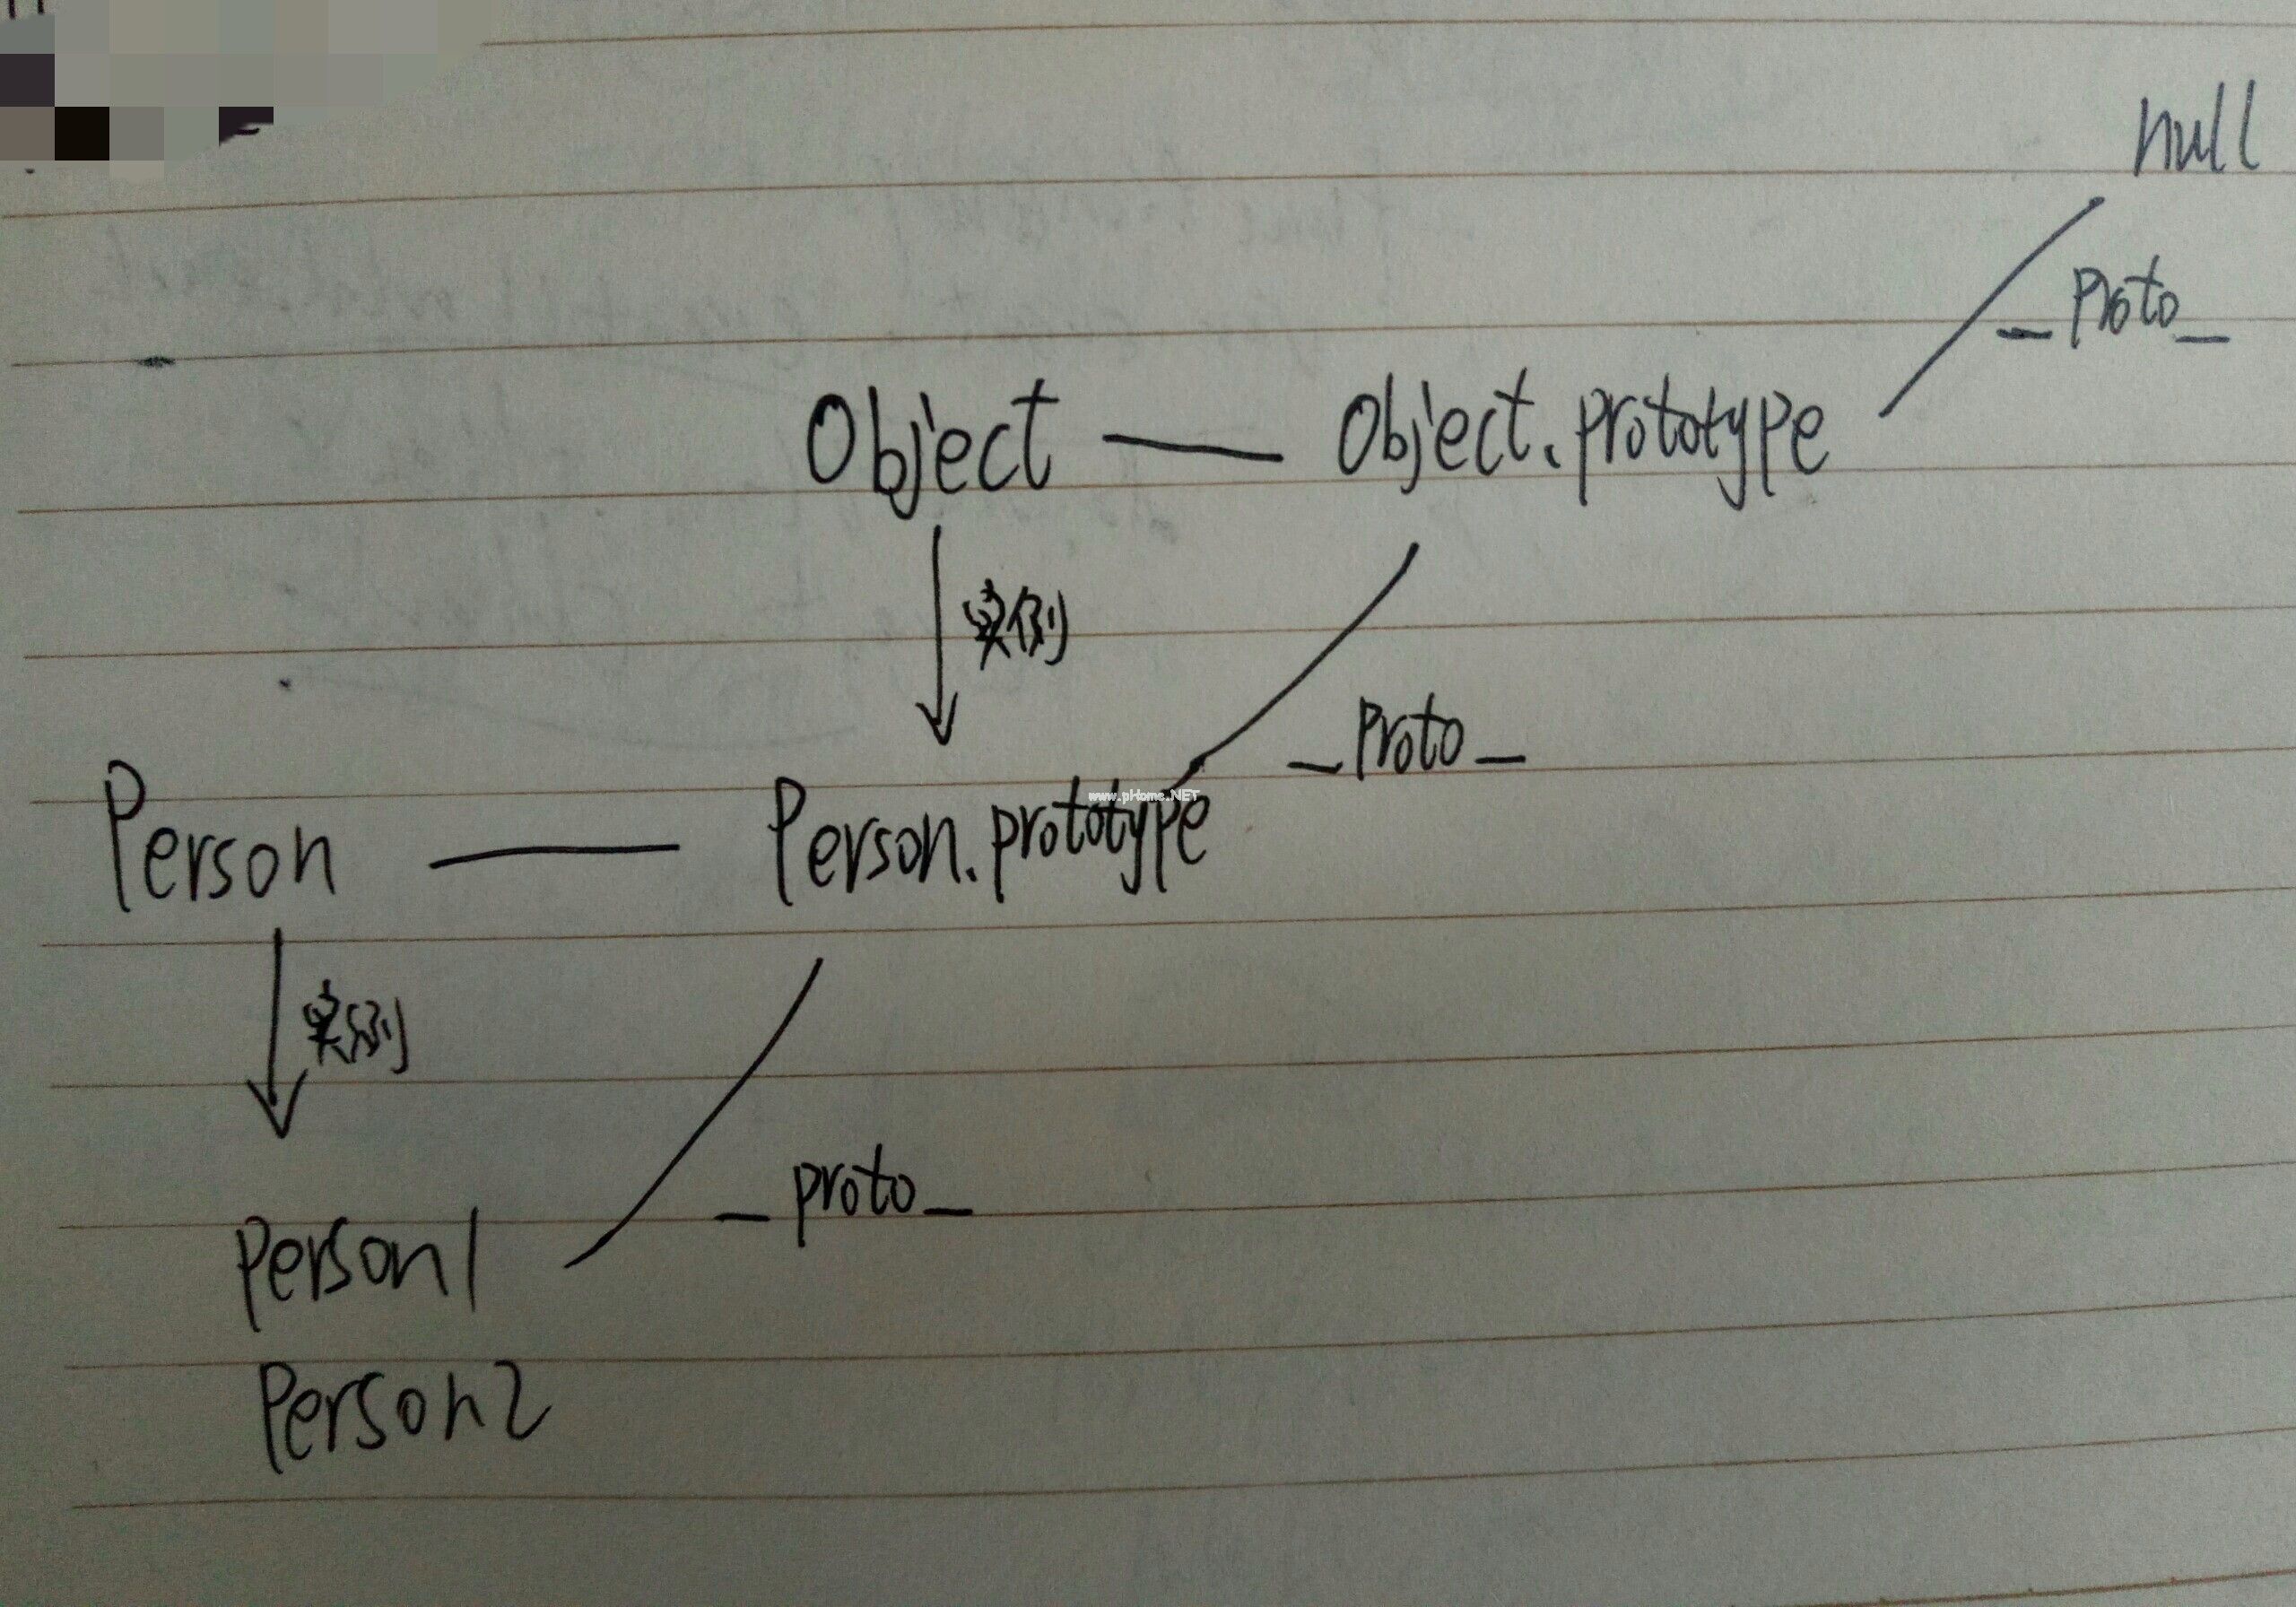 null
_proto_
Object — Object.prototype
实例
_proto_
www.pHome.NET
Person — Person.prototype
实例
_proto_
Person1
Person2